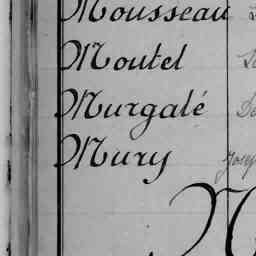 Mousseau
Moutel
Murgalé
Mury
N